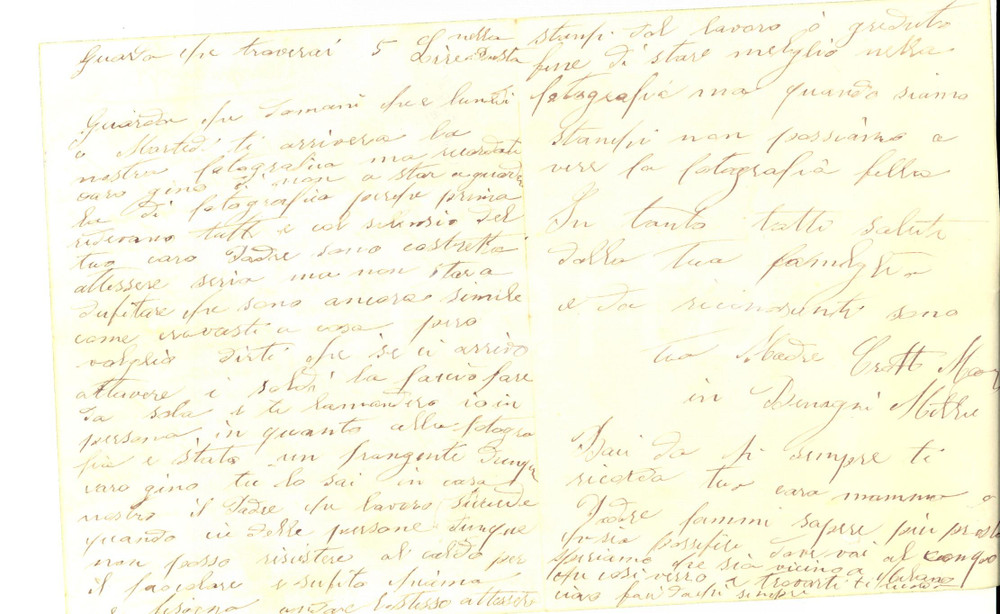 Guarda che troverai 5 Lire nella busta
Guarda che domani che e lundi
o Martedi ti arrivera la
nostra fotografia ma ricordati
caro gino di non a star a guarda
la di fotografia perche prima
ridevano tutti e col silensio del
tuo caro Padre sono costretti
attessere seria ma non stara
dubitare che sono ancora simile
come eravasti a casa pero
volglio dirti che se ci arrivo
attavere i soldi la faccio fare
da sola e te la mandero io in
persona in quanto alla fotogra
fia e stato un frangente dunque
caro gino tu lo sai in casa
nostro il Padre che lavoro
quando ci delle persone dunque
non posso risistere al caldo per
il facolare e subito prima
e bisogna andare lo stesso
stanchi dal lavoro o creduto
fine di stare melglio nella
fotografia ma quando siamo
stanchi non possiamo a
vere la fotografia bella
In tanto tatti saluti
dalla tua familglia
e da sono
tua Madre Crotti
in Benagni
Baci da chi sempre ti
ricorda tuo cara mamma e
Padre fammi sapere piu presto
che sia possibile dove vai al congo
speriamo che sia vicino a Milano
che cosi verro a trovarti
caro baci da chi sempre